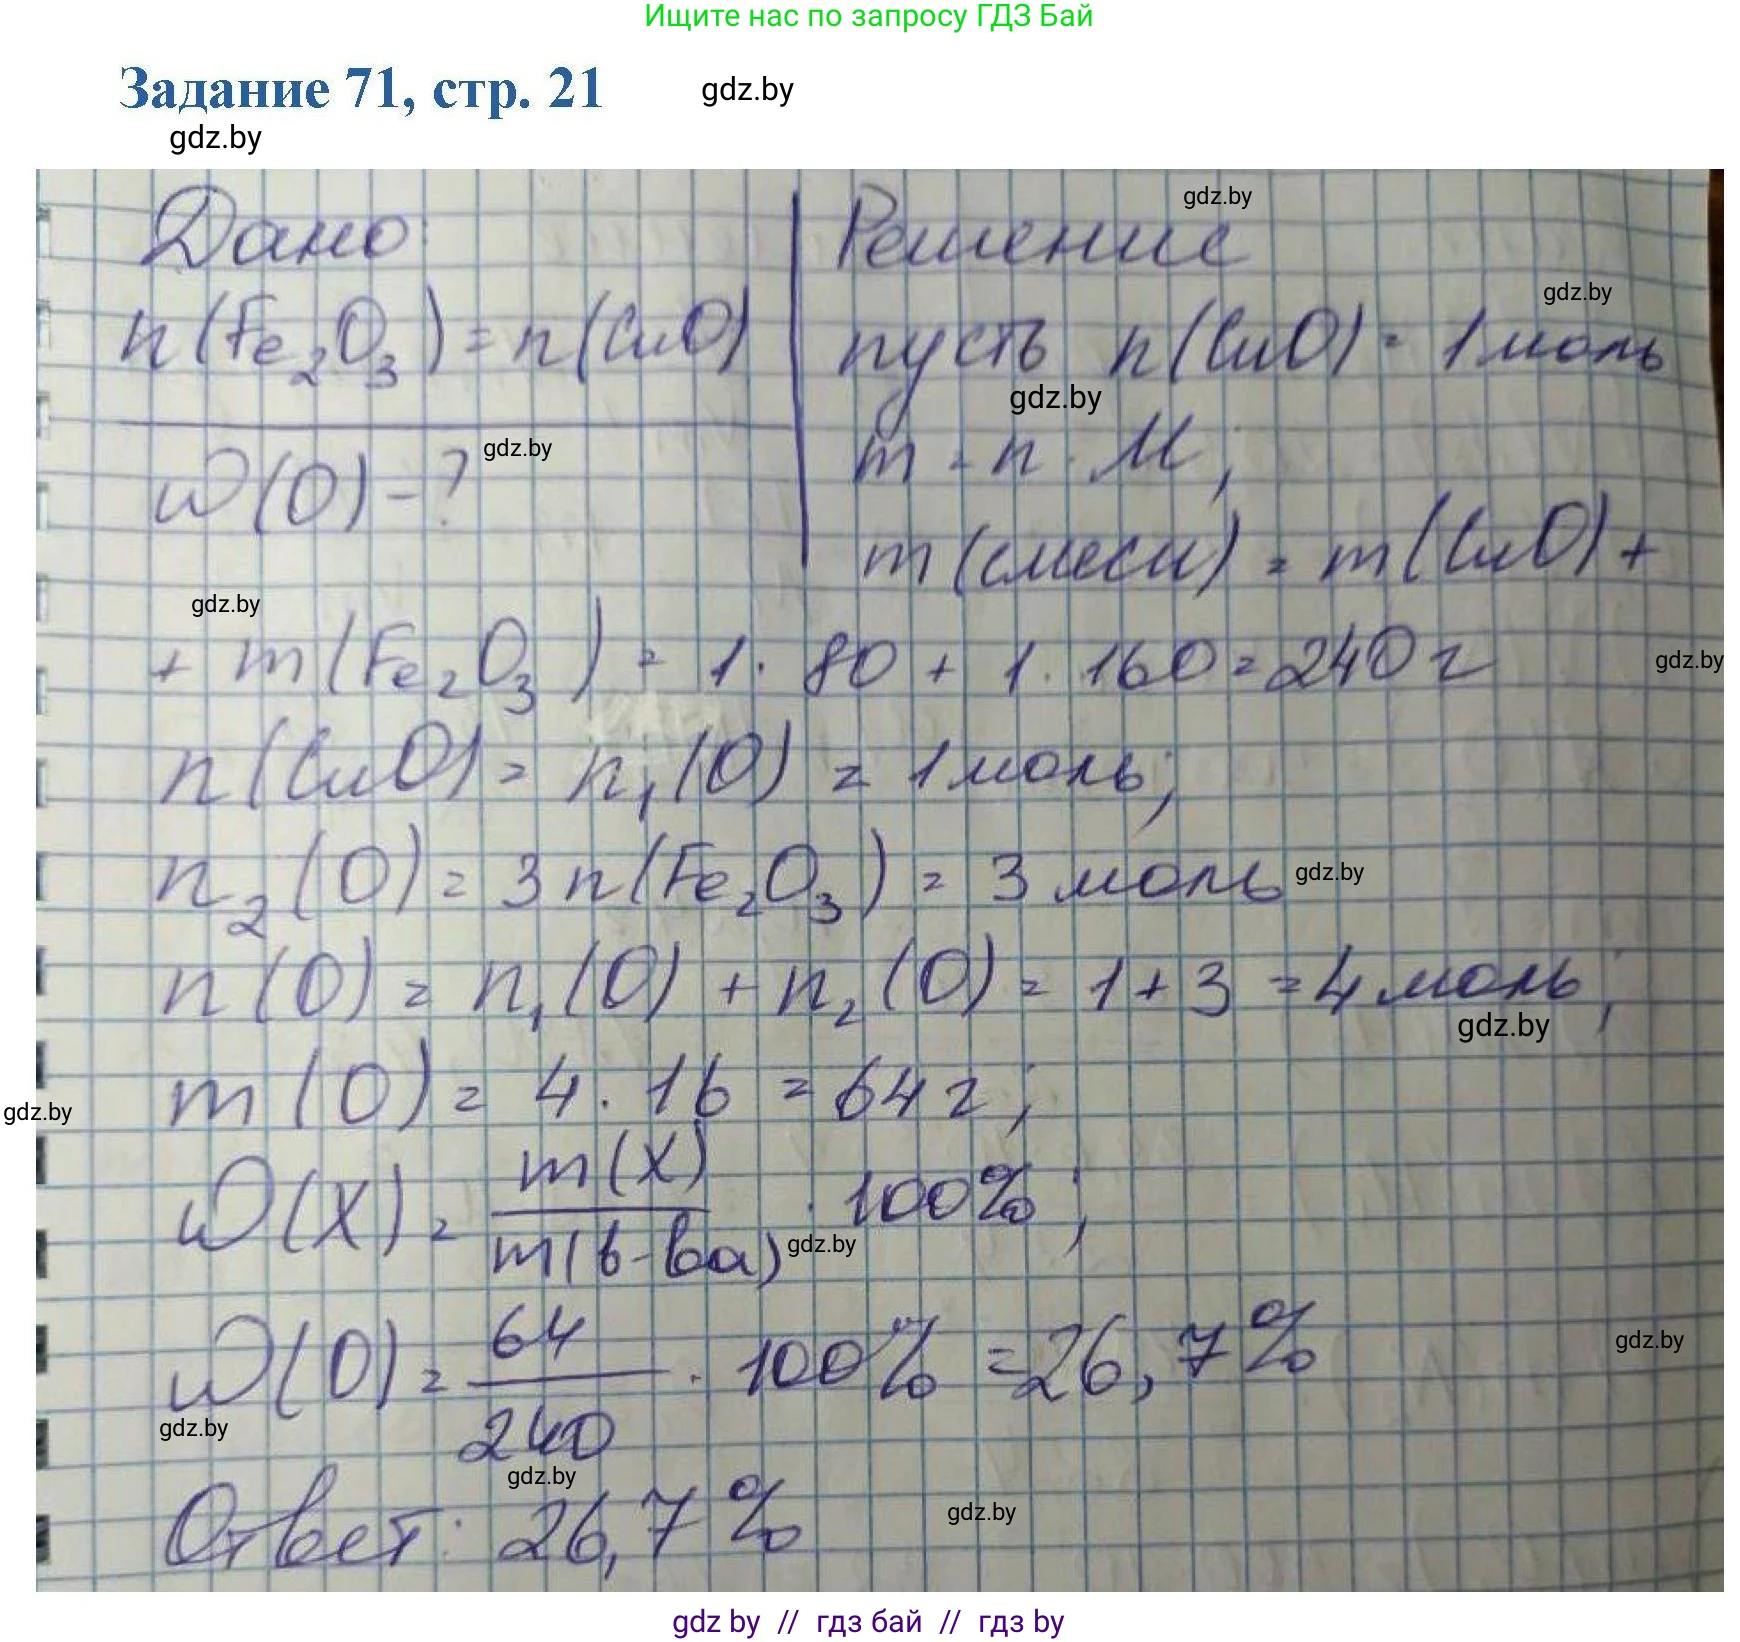 Ищите нас по запросу ГДЗ Бай
Задание 71, стр. 21
gdz.by
gdz.by
Дано:
n(Fe₂O₃) = n(CuO)
ω(O) - ?
gdz.by
Решение
gdz.by
gdz.by
пусть n(CuO) = 1 моль
gdz.by
m = n · M;
m(смеси) = m(CuO) +
gdz.by
+ m(Fe₂O₃) = 1 · 80 + 1 · 160 = 240 г
gdz.by
n(CuO) = n₁(O) = 1 моль;
n₂(O) = 3n(Fe₂O₃) = 3 моль
gdz.by
n(O) = n₁(O) + n₂(O) = 1 + 3 = 4 моль;
gdz.by
m(O) = 4 · 16 = 64 г;
gdz.by
ω(X) = m(X) / m(в-ва) · 100%;
gdz.by
ω(O) = 64 / 240 · 100% = 26,7%
gdz.by
gdz.by
gdz.by
Ответ: 26,7%
gdz.by
gdz by // гдз бай // гдз by